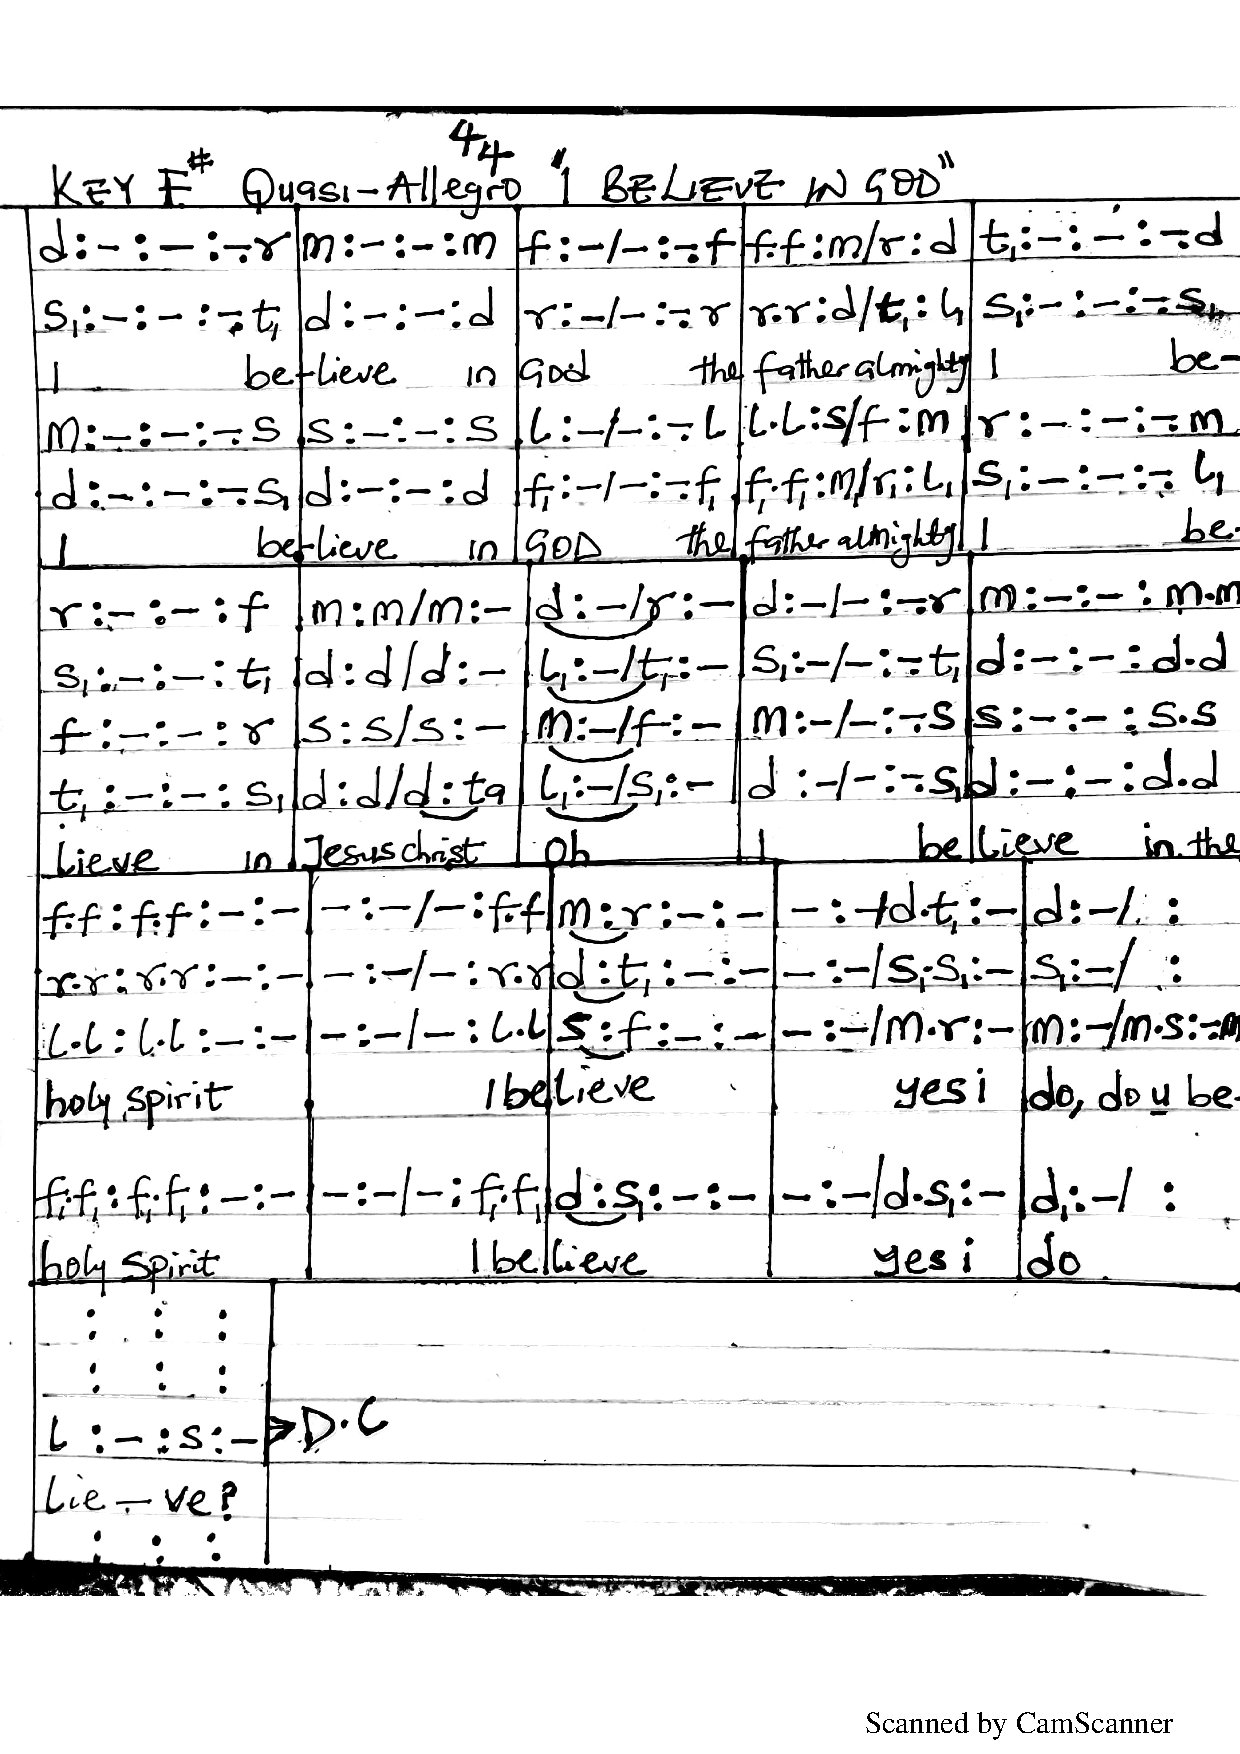 4/4
KEY F# Quasi-Allegro "I BELIEVE IN GOD"
d:-:-:-.r|m:-:-:m|f:-/-:-.f|f.f:m/r:d|t₁:-:-:-.d
s₁:-:-:-.t₁|d:-:-:d|r:-/-:-.r|r.r:d/t₁:l₁|s₁:-:-:-.s₁
I be-lieve in God the father almighty I be-
m:-:-:-.s|s:-:-:s|l:-/-:-.l|l.l:s/f:m|r:-:-:-.m
d:-:-:-.s₁|d:-:-:d|f₁:-/-:-.f₁|f₁.f₁:m₁/r₁:l₁|s₁:-:-:-.l₁
I be-lieve in GOD the father almighty I be-
r:-:-:f|m:m/m:-|d:-/r:-|d:-/-:-.r|m:-:-:m.m
s₁:-:-:t₁|d:d/d:-|l₁:-/t₁:-|s₁:-/-:-.t₁|d:-:-:d.d
f:-:-:r|s:s/s:-|m:-/f:-|m:-/-:-.s|s:-:-:s.s
t₁:-:-:s₁|d:d/d:ta|l₁:-/s₁:-|d:-/-:-.s₁|d:-:-:d.d
lieve in Jesus christ Oh I be lieve in the
f.f:f.f:-:-|-:-/-:f.f|m:r:-:-|-:-/d.t₁:-|d:-/ :
r.r:r.r:-:-|-:-/-:r.r|d:t₁:-:-|-:-/s₁.s₁:-|s₁:-/ :
l.l:l.l:-:-|-:-/-:l.l|s:f:-:-|-:-/m.r:-|m:-/m.s:-.m
holy spirit I be lieve yes i do, do u be-
f₁.f₁:f₁.f₁:-:-|-:-/-:f₁.f₁|d:s₁:-:-|-:-/d.s₁:-|d₁:-/ :
holy spirit I be lieve yes i do
: : :
: : :
l:-:s:-> D.C
lie - ve?
: : :
Scanned by CamScanner